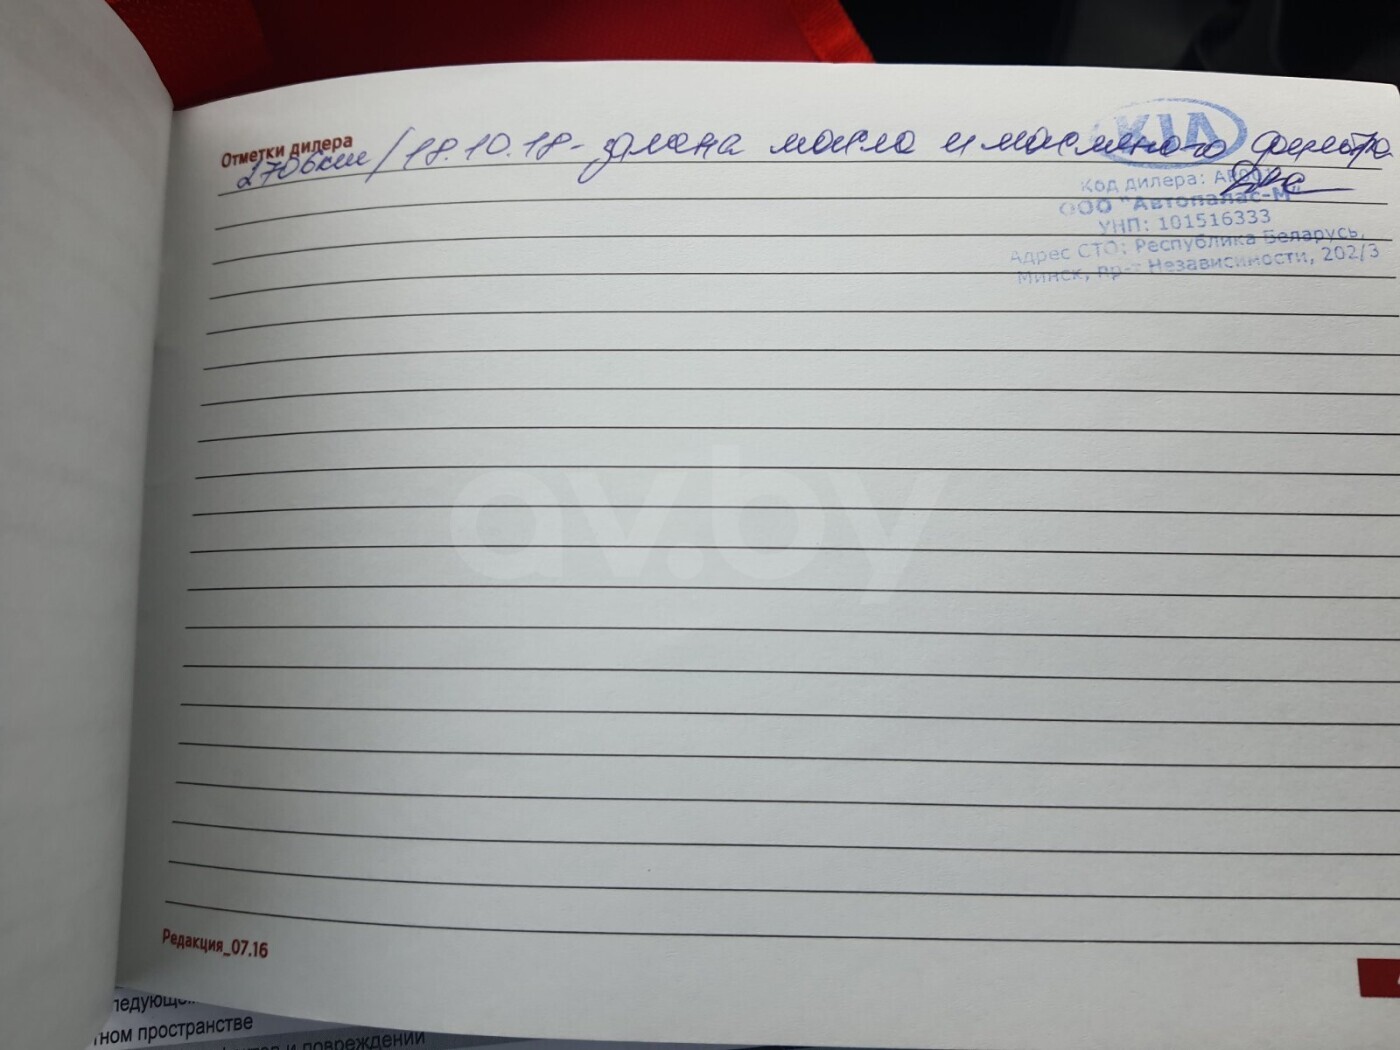 Отметки дилера
2706км / 18.10.18 - замена масла и масляного фильтра
KIA
Код дилера:
ООО "Автопалас-М"
УНП: 101516333
Адрес СТО: Республика Беларусь,
Минск, пр-т Независимости, 202/3
av.by
Редакция_07.16
ном пространстве
и повреждений